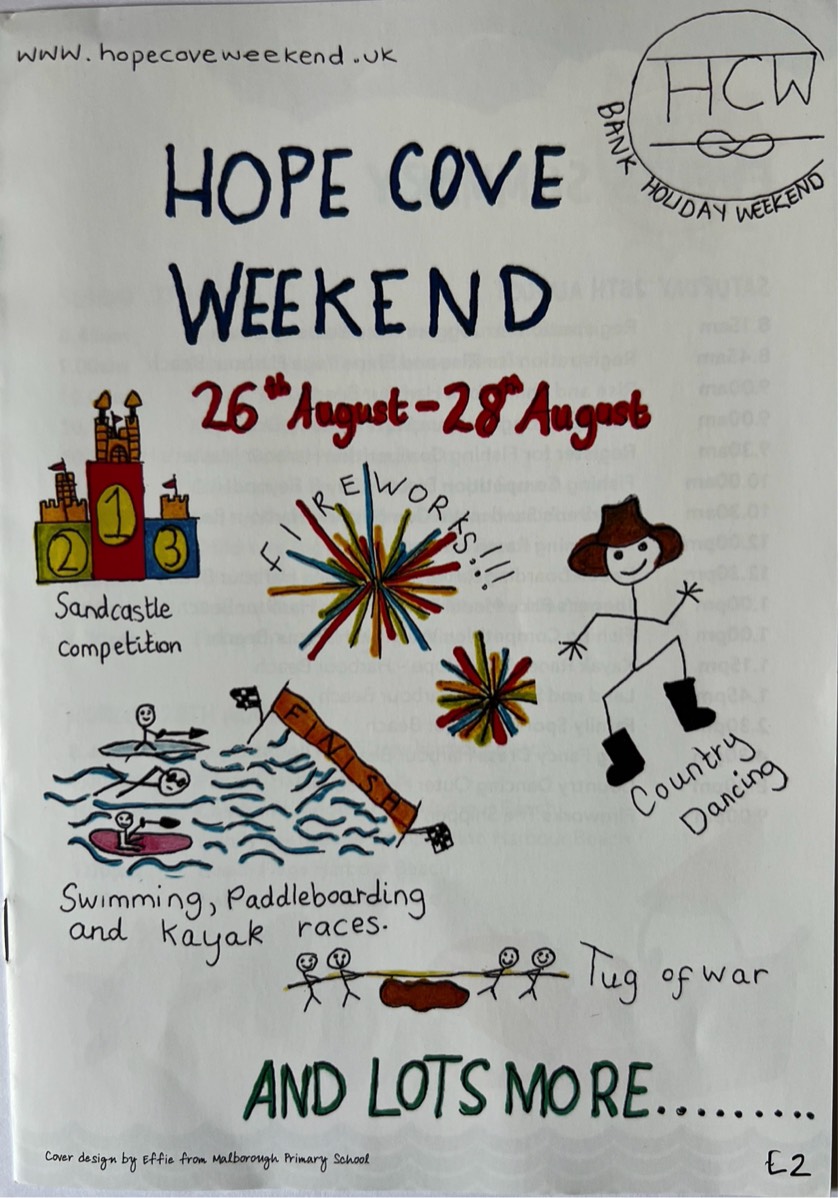 www.hopecoveweekend.uk
HCW
BANK HOLIDAY WEEKEND
HOPE COVE
WEEKEND
26th August - 28th August
1
2
3
Sandcastle
competition
FIREWORKS!!!
FINISH
Country
Dancing
Swimming, Paddleboarding
and kayak races.
Tug of war
AND LOTS MORE.........
Cover design by Effie from Malborough Primary School
£2